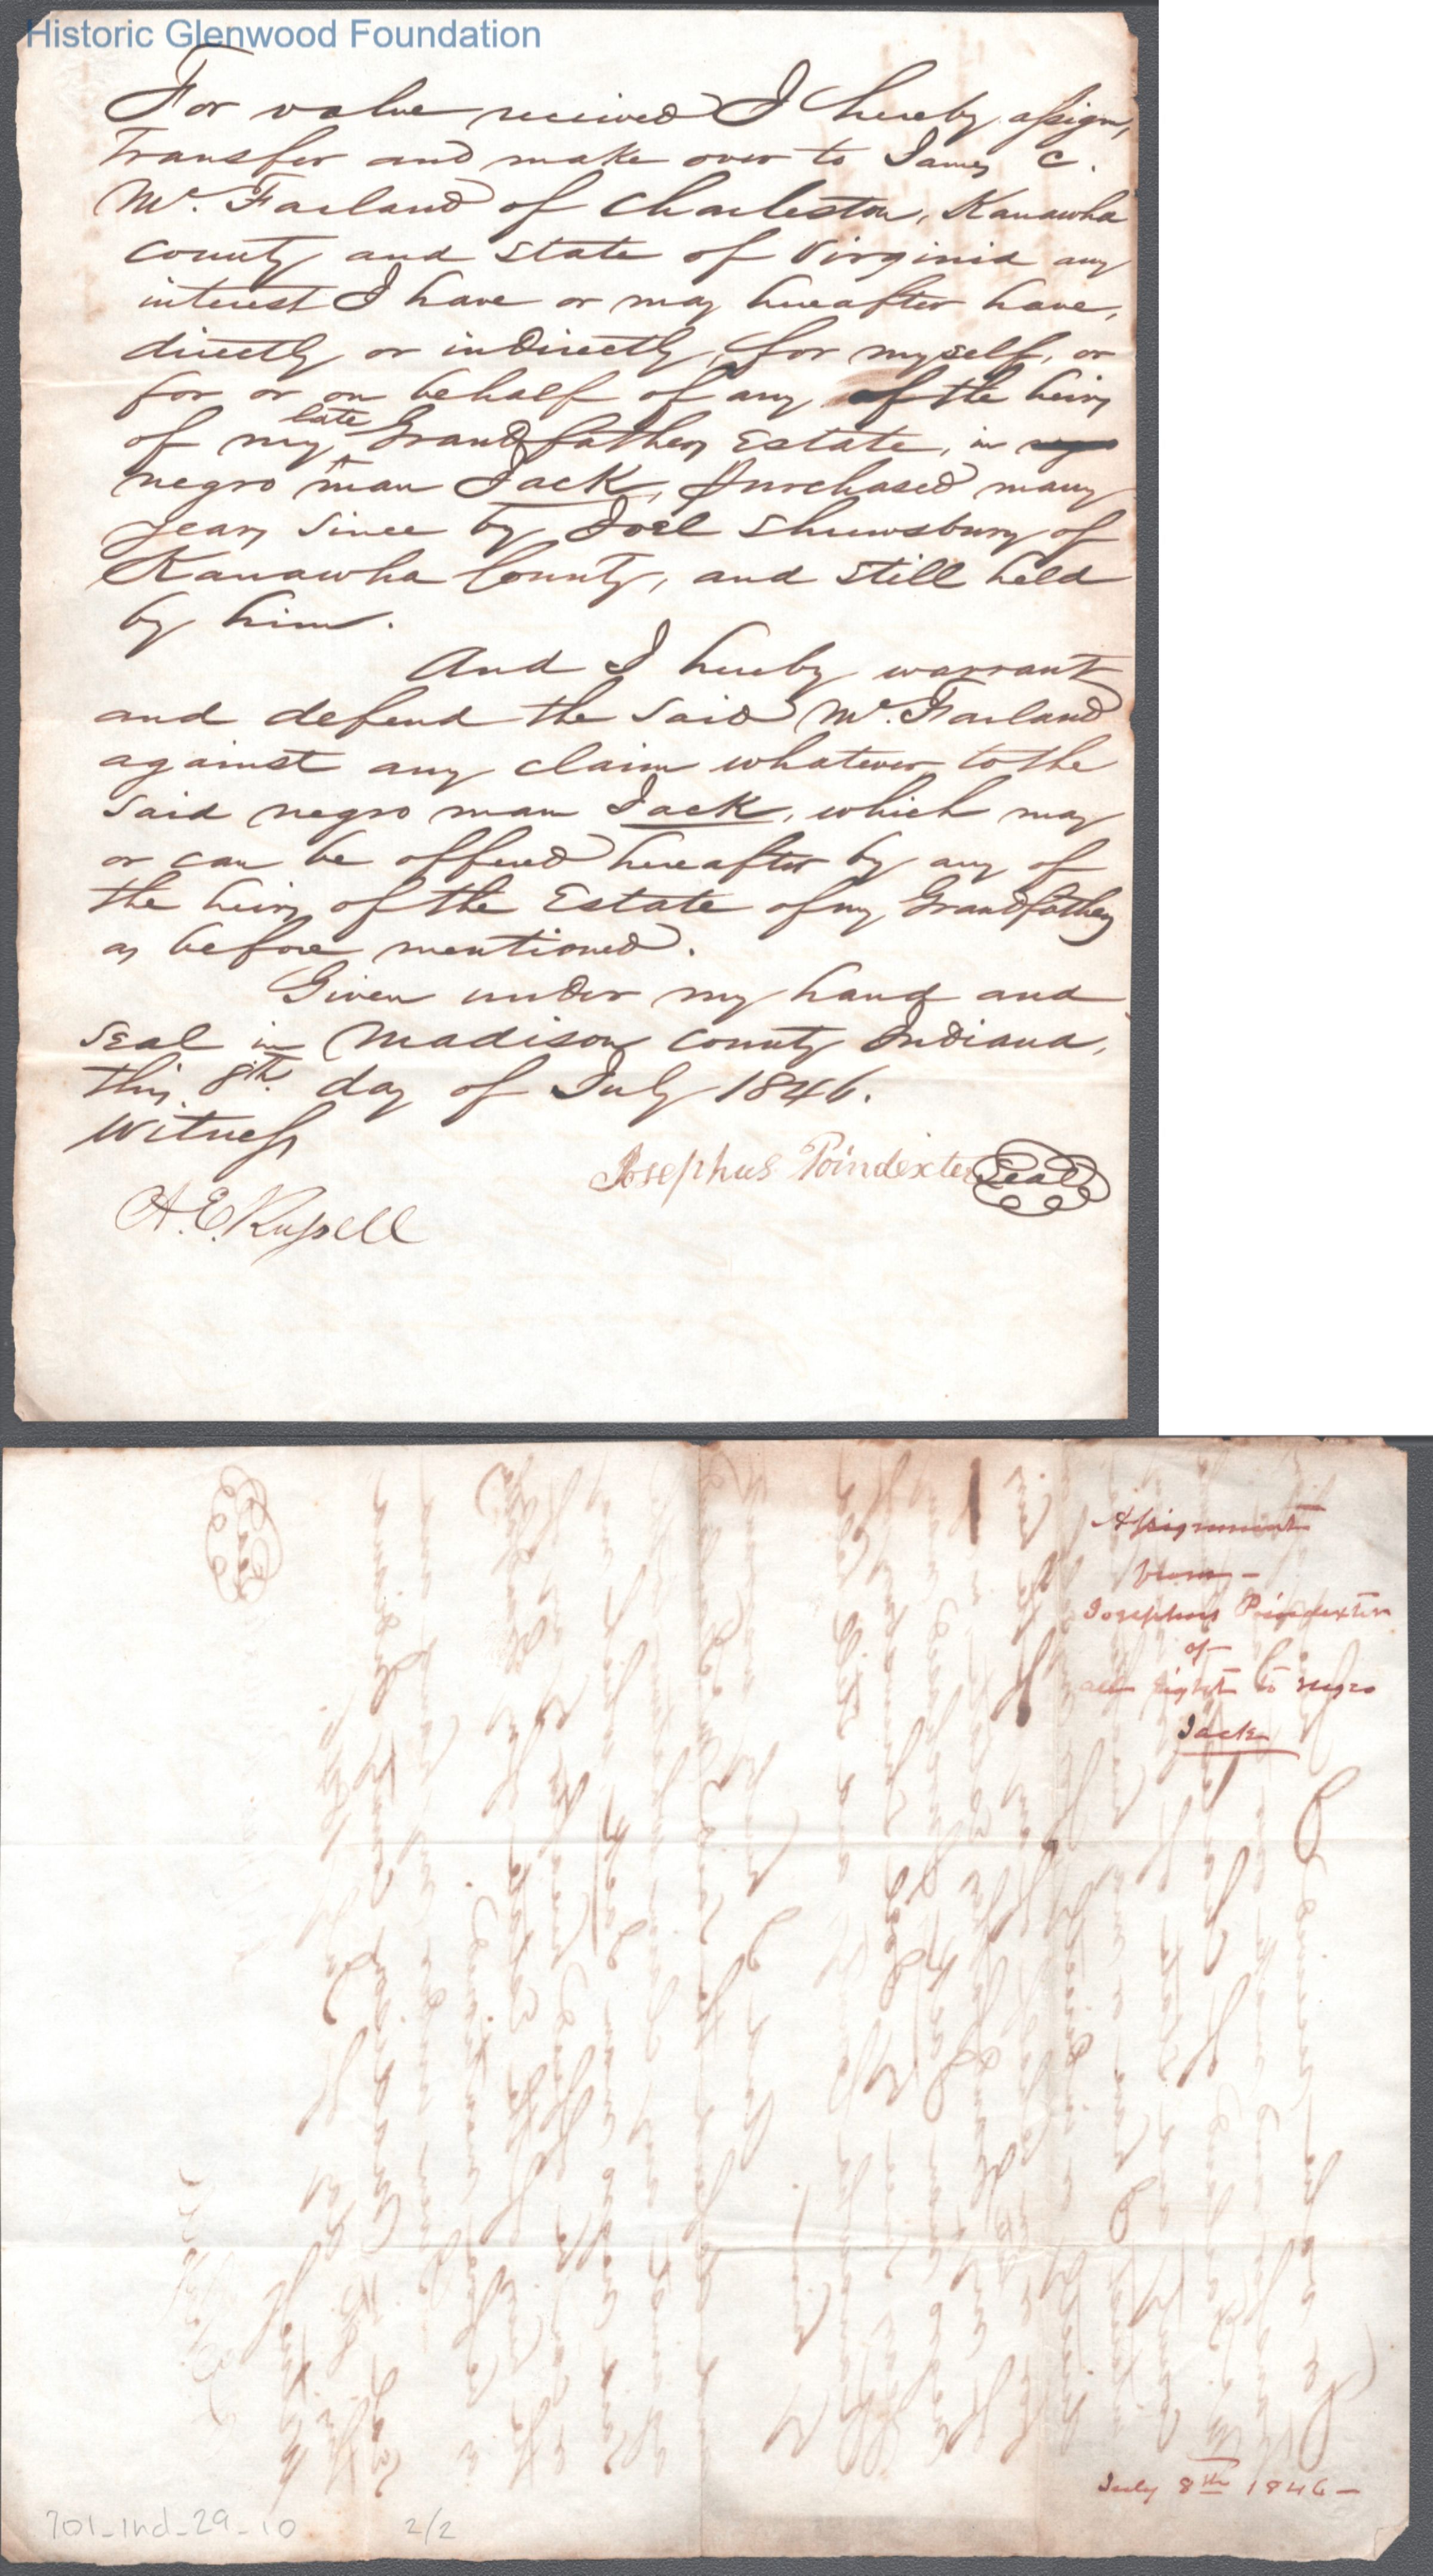 Historic Glenwood Foundation
For value received I hereby assign,
transfer and make over to James C.
Mc. Farland of Charleston, Kanawha
county and state of Virginia any
interest I have or may hereafter have,
directly or indirectly, for myself, or
for or on behalf of any of the heirs
of my late Grandfathers Estate, in
negro man Jack, purchased many
years since by Joel Shrewsbury of
Kanawha County, and still held
by him.
And I hereby warrant
and defend the said Mc. Farland
against any claim whatever to the
said negro man Jack, which may
or can be offered hereafter by any of
the heirs of the Estate of my Grandfathers
as before mentioned.
Given under my hand and
seal in Madison county Indiana,
this 8th. day of July 1846.
Witness
Josephus Poindexter Seal
A. E. Russell
Assignment
from -
Josephus Poindexter
of
all right to negro
Jack
July 8th 1846 -
701_Ind_29_10 2/2